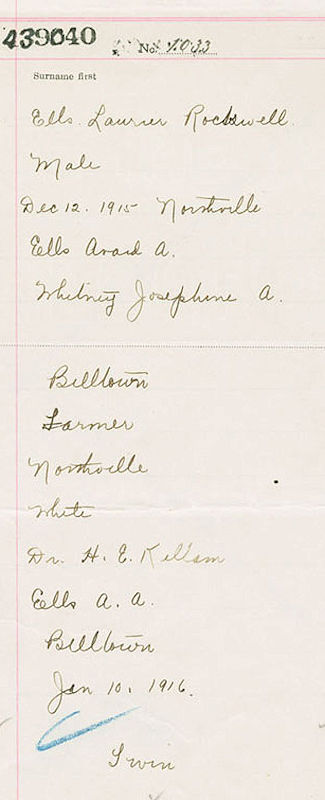 439040
No. 1033
Surname first
Ells Laurier Rockwell
Male
Dec 12. 1915 Northville
Ells Avard A.
Whitney Josephine A.
Billtown
Farmer
Northville
White
Dr. H. E. Killam
Ells A. A.
Billtown
Jan 10. 1916.
Irvin